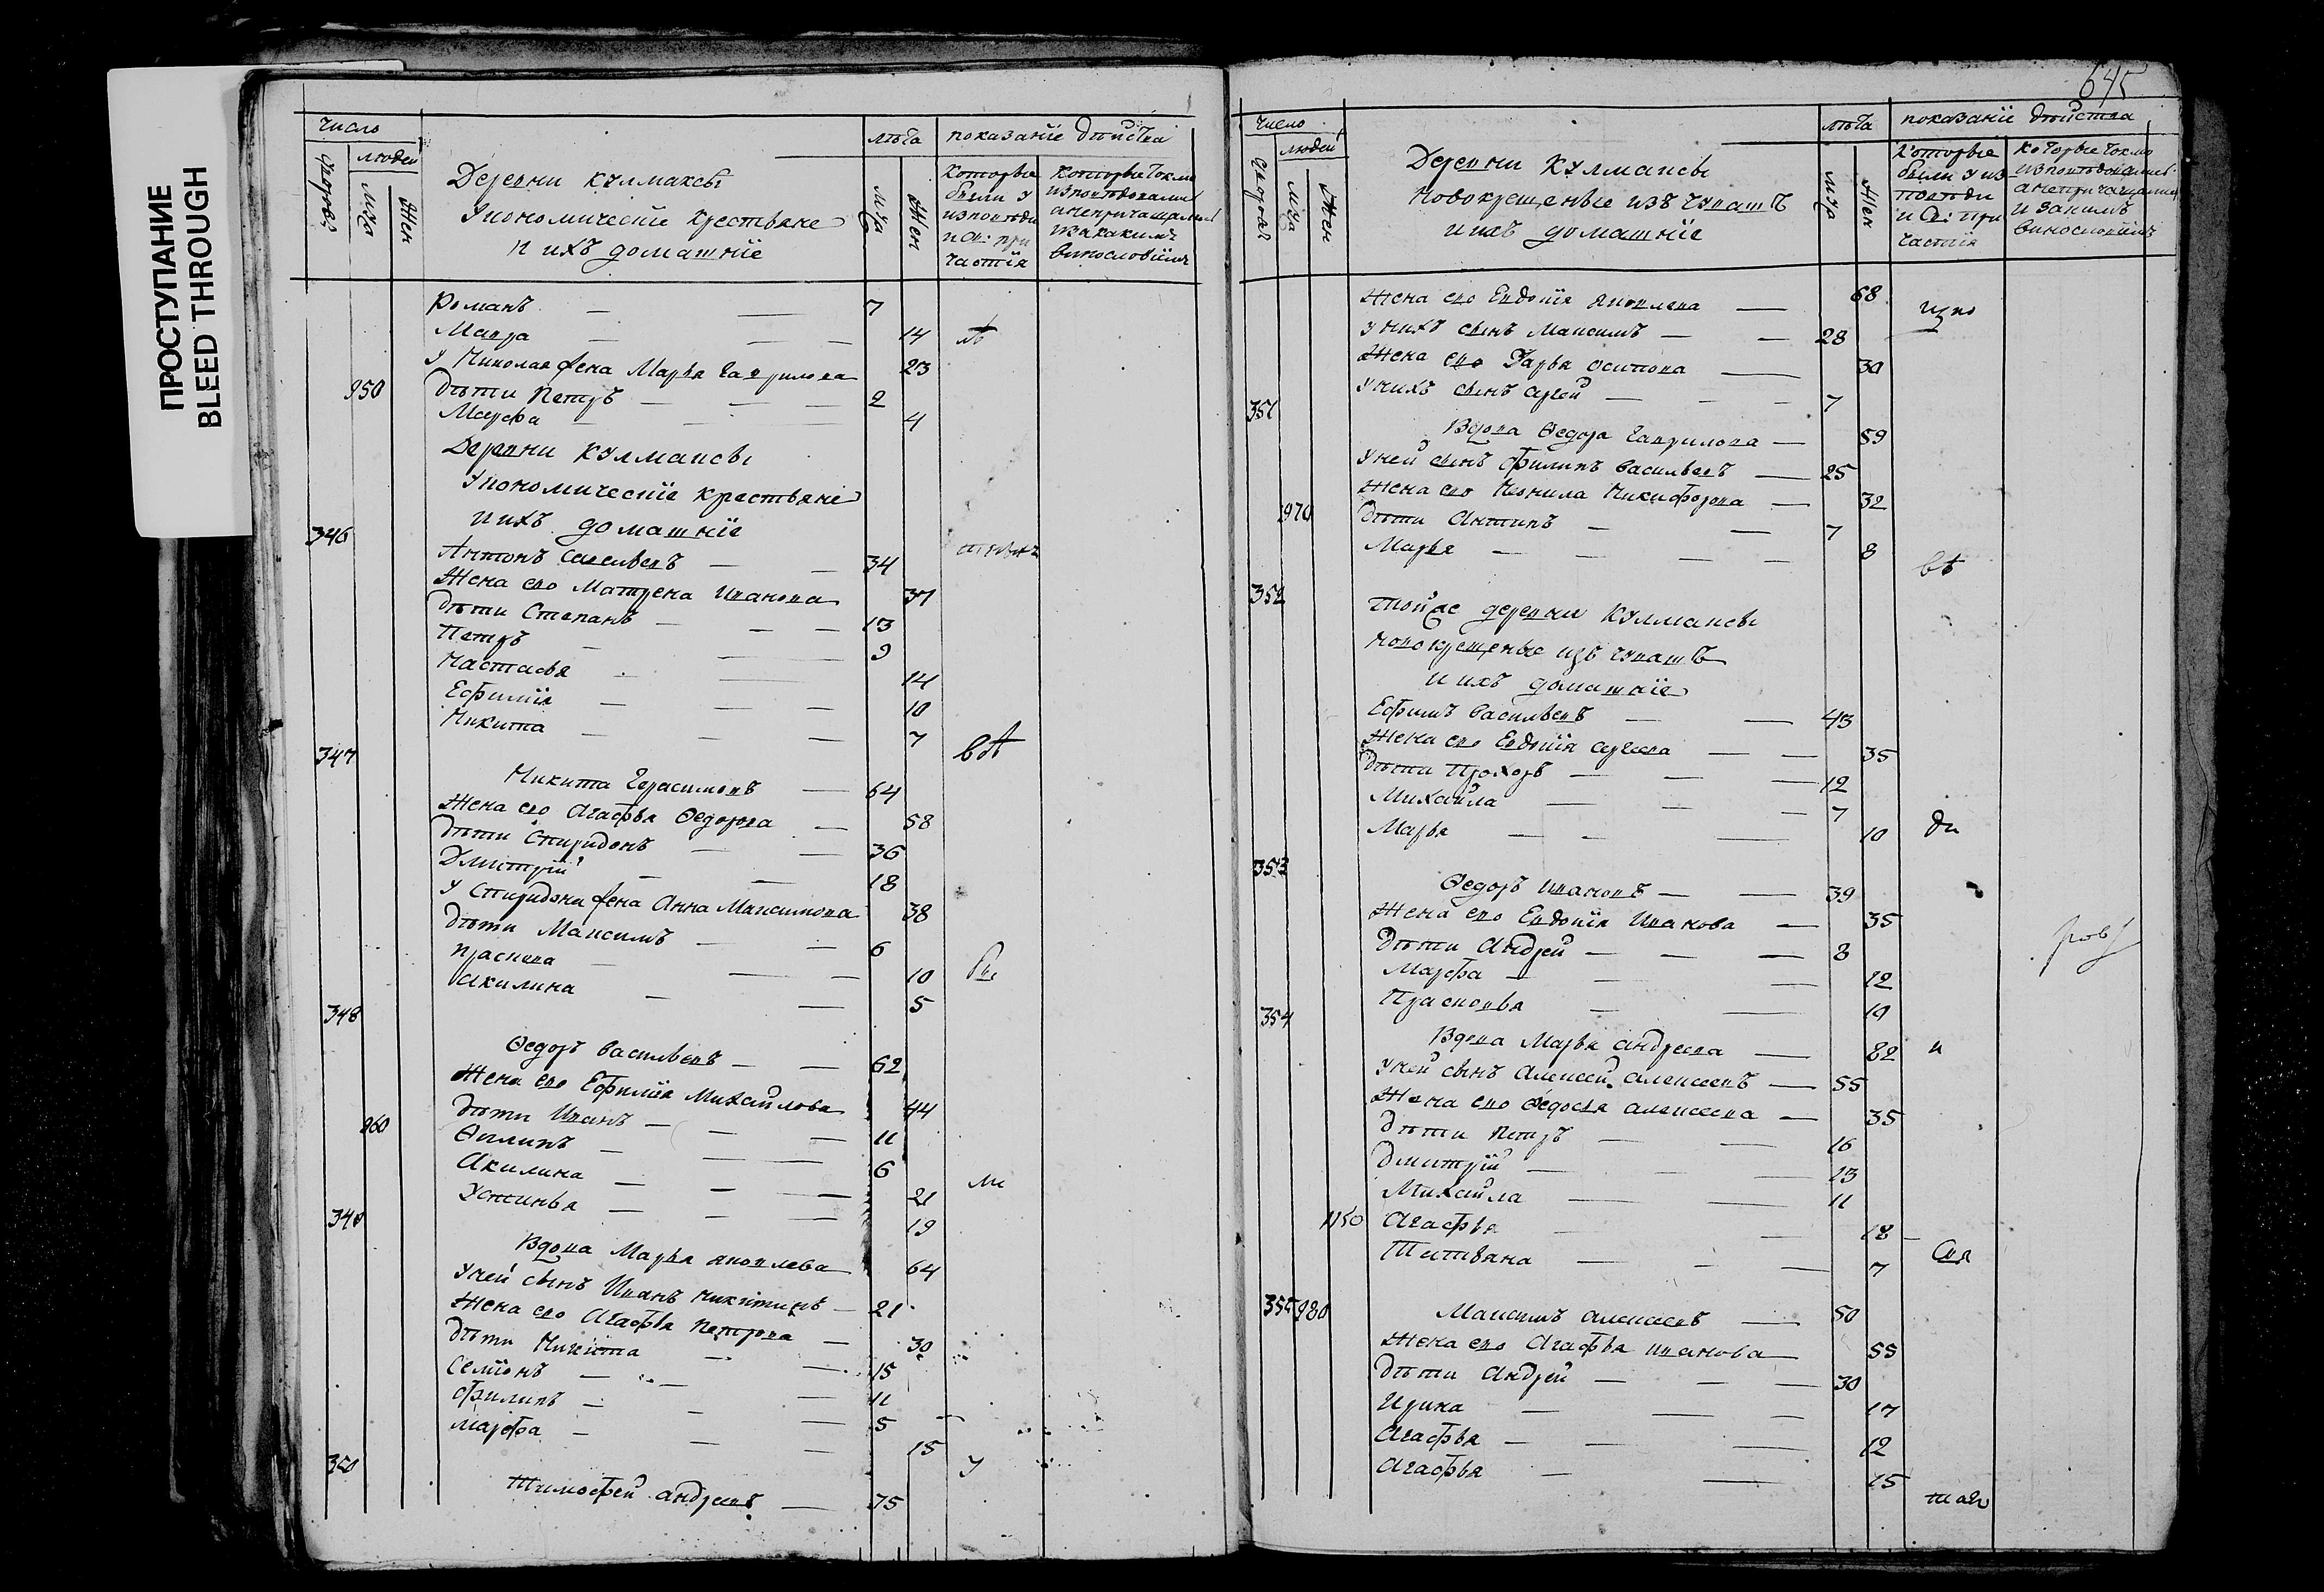 ПРОСТУПАНИЕ
BLEED THROUGH
число
людей
дворовъ
муз
жен
Деревни Кулмаксы
Икономическіе крестьяне
и ихъ домашніе
лѣта
муз
жен
показаніе дѣйства
которые были у исповѣди и С: причастія
которые токмо исповѣдались а непричащались и за какимъ винословіемъ
Романъ 7
Мавра 14
У Николая жена Марья Гаврилова 23
950 Дѣти Петръ 2
Марфа 4
Деревни Кулмаксы
Икономическіе крестьяне
и ихъ домашніе
346
Антонъ Савельевъ 34
Жена его Матрена Иванова 37
Дѣти Степанъ 13
Петръ 9
Настасья 14
Ефимія 10
Никита 7
347
Никита Герасимовъ 64
Жена его Агафья Ѳедорова 58
Дѣти Спиридонъ 36
Дмитрій 18
У Спиридона жена Анна Максимова 38
Дѣти Максимъ 6
10
Акилина 5
348
Ѳедоръ Васильевъ 62
Жена его Ефимія Михайлова 44
Дѣти Иванъ 11
960 Ѳилипъ 6
Акилина 21
Устинья 19
349
Вдова Марья Яковлева 64
У ней сынъ Иванъ Никитинъ 21
Жена его Агафья Петрова 30
Дѣти Никита 15
Семіонъ 11
Филипъ 5
Марфа 15
350
Тимофей Андреевъ 75
645
число
людей
дворовъ
муз
жен
Деревни Кулмаксы
Новокрещеные изъ чувашъ
и ихъ домашніе
лѣта
муз
жен
показаніе дѣйства
которые были у исповѣди и С: причастія
которые токмо исповѣдались а непричащались и за какимъ винословіемъ
Жена его Евдокія Яковлева 68
У нихъ сынъ Максимъ 28
Жена его Дарья Осипова 30
У нихъ сынъ Сергей 7
351
Вдова Ѳедора Гаврилова 59
У ней сынъ Филипъ Васильевъ 25
Жена его Неонила Никифорова 32
970 Дѣти Антипъ 7
Марья 8
352
Тойже деревни Кулмаксы
новокрещеные изъ чувашъ
и ихъ домашніе
Ефимъ Васильевъ 43
Жена его Евдокія Сергеева 35
Дѣти Прохоръ 12
Михайла 7
Марья 10
353
Ѳедоръ Ивановъ 39
Жена его Евдокія Иванова 35
Дѣти Андрей 8
Марфа 12
Прасковья 10
354
Вдова Марья Андреева 82
У ней сынъ Алексей Алексеевъ 55
Жена его Ѳедосья Алексеева 35
Дѣти Петръ 16
Дмитрій 13
Михайла 11
1150 Агафья 18
Татьяна 7
355 980 Максимъ Алексеевъ 50
Жена его Агафья Иванова 55
Дѣти Андрей 30
Ирина 17
Агафья 12
Агафья 15